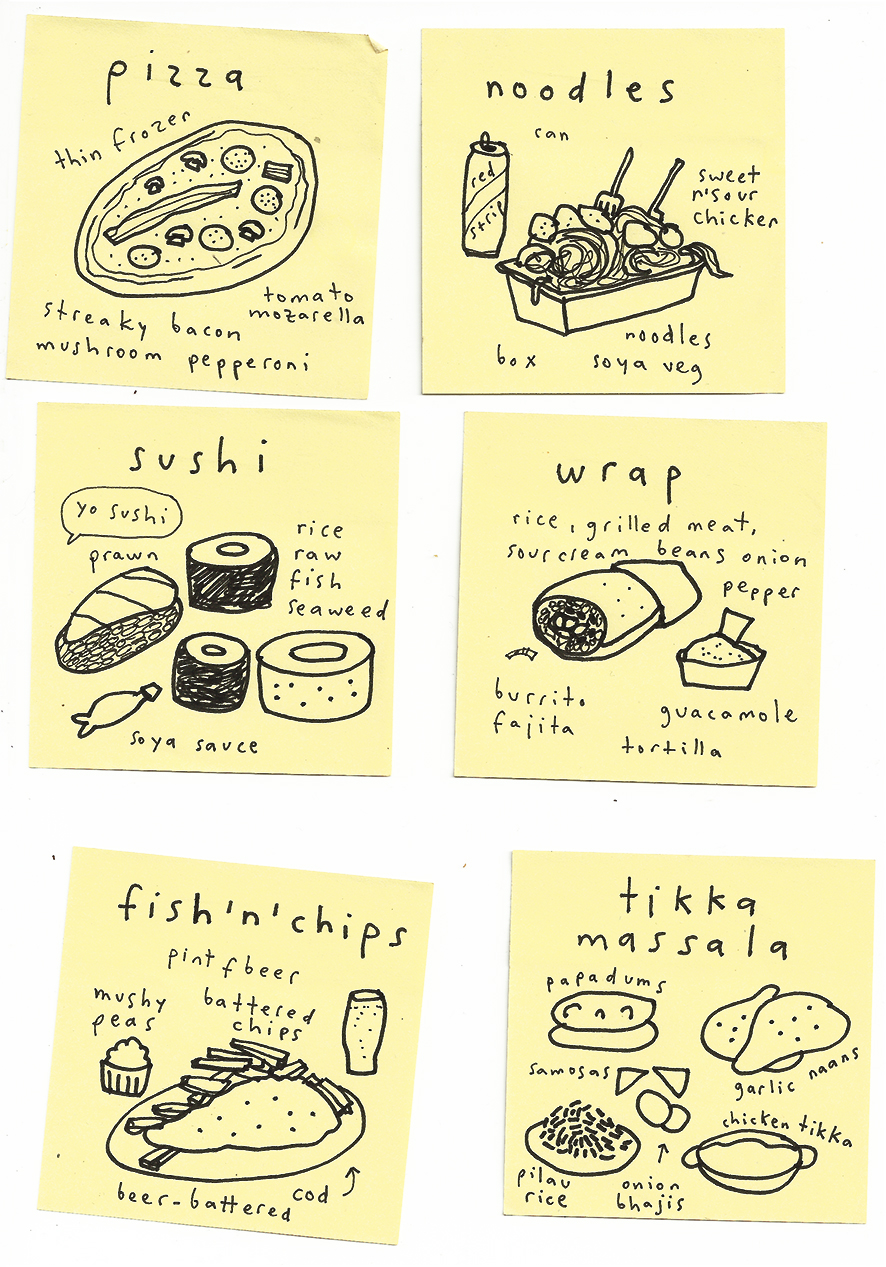 pizza
thin frozen
tomato
mozarella
streaky bacon
mushroom pepperoni
noodles
can
red
strip
sweet
n'sour
chicken
noodles
box soya veg
sushi
yo sushi
prawn
rice
raw
fish
seaweed
soya sauce
wrap
rice, grilled meat,
sour cream beans onion
pepper
burrito
fajita
guacamole
tortilla
fish'n'chips
pint f beer
mushy
peas
battered
chips
cod
beer-battered
tikka
massala
papadums
garlic naans
samosas
chicken tikka
pilau
rice
onion
bhajis